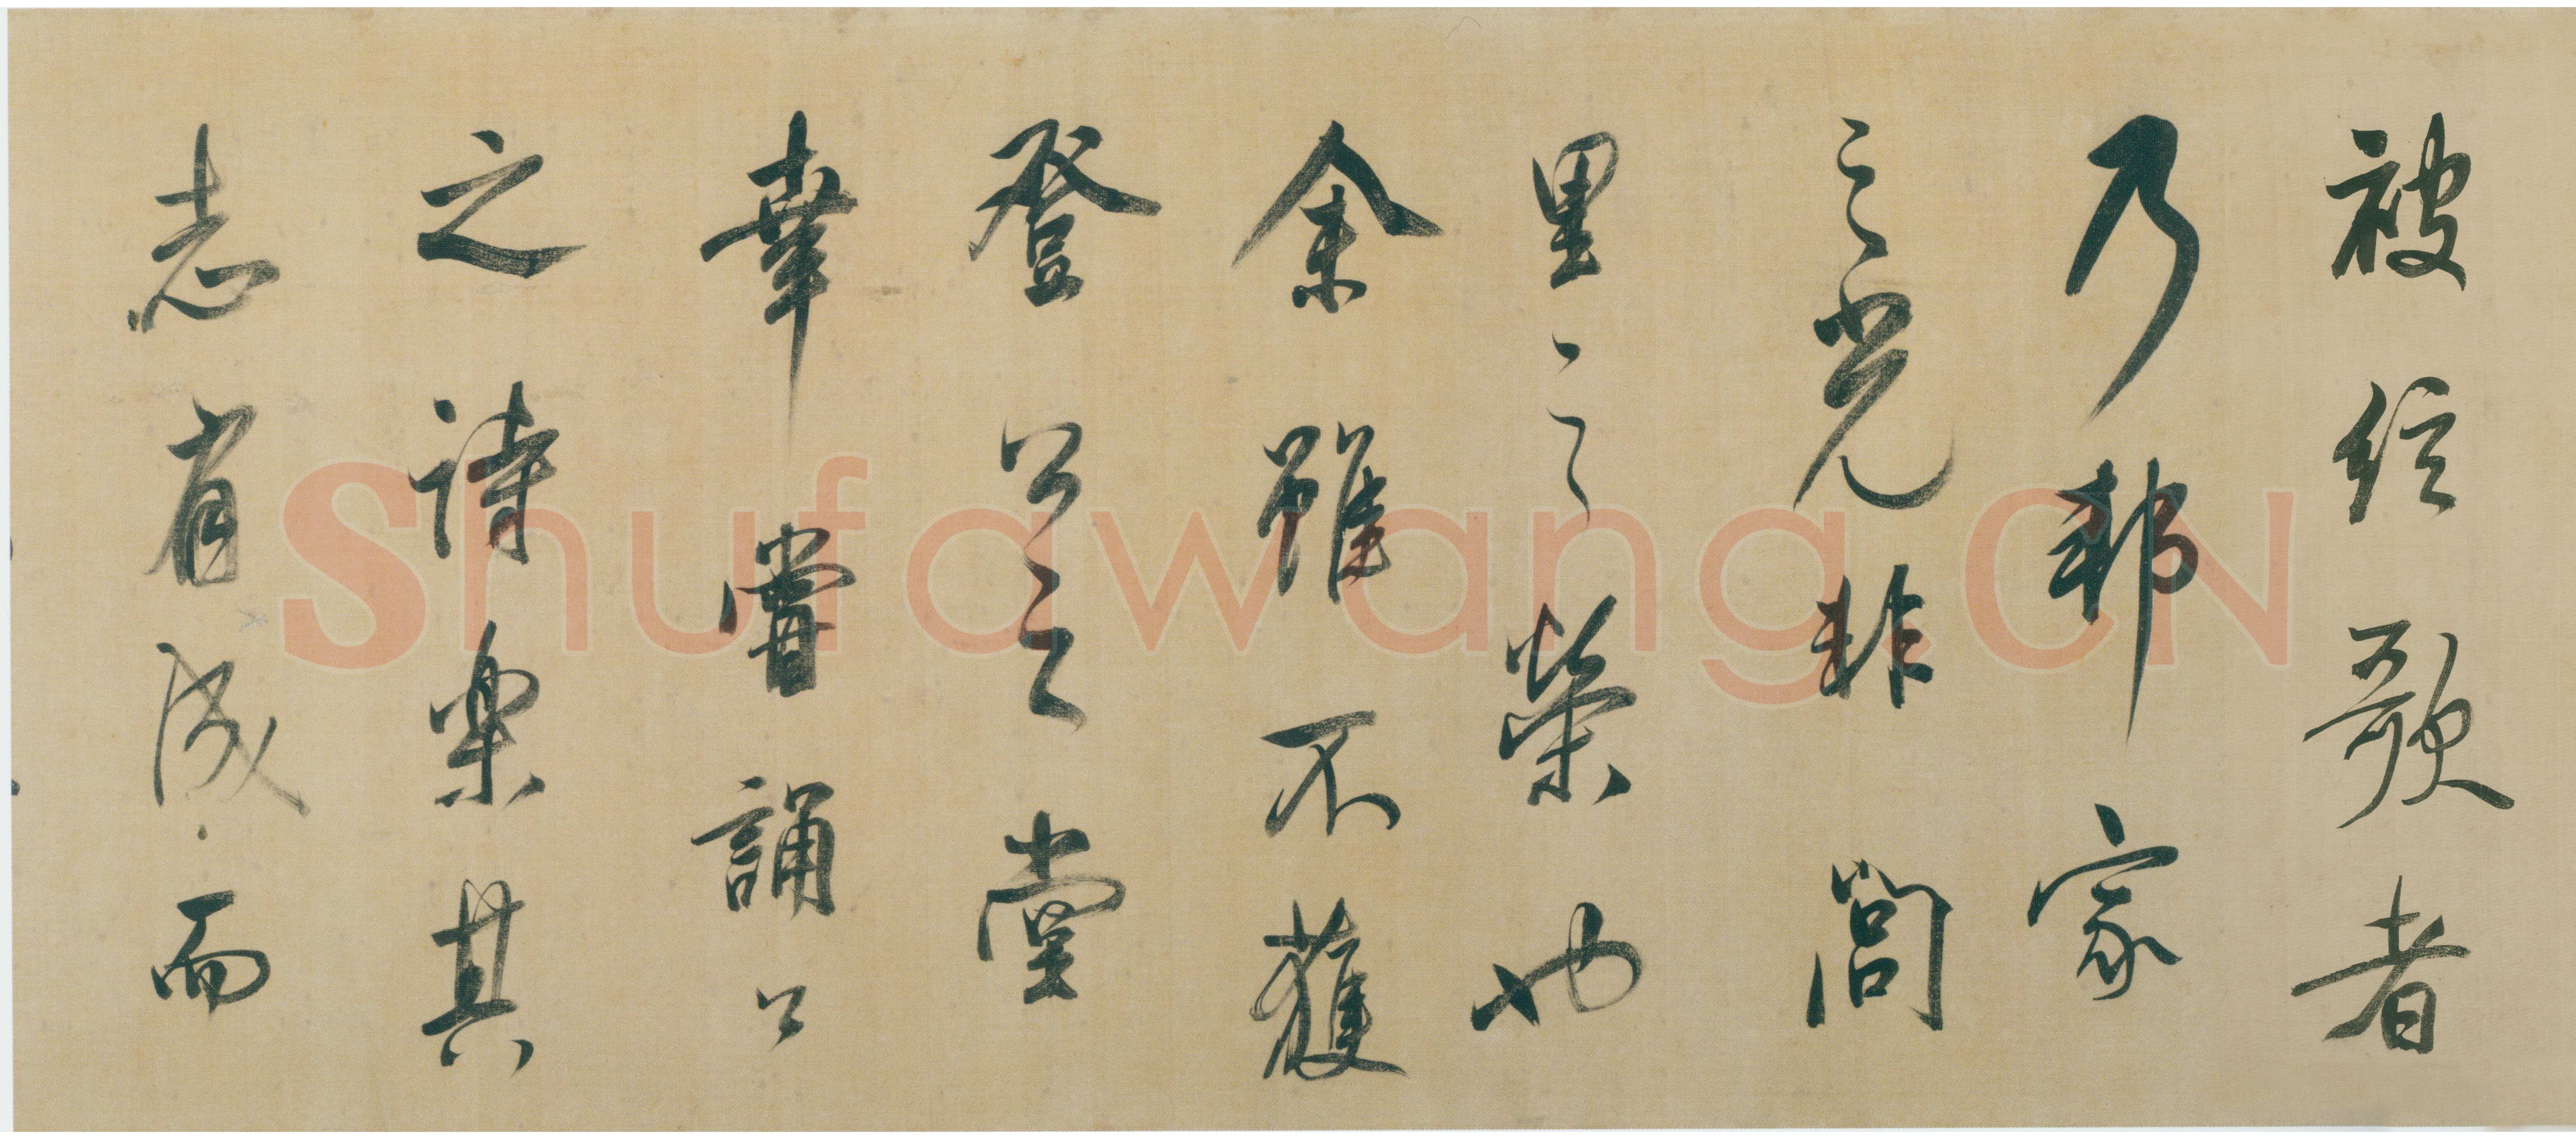 被絃歌者
乃邦家
之光非閭
里之榮也
余雖不獲
登公之堂
幸嘗誦公
之詩樂其
志有成而
Shufawang.CN